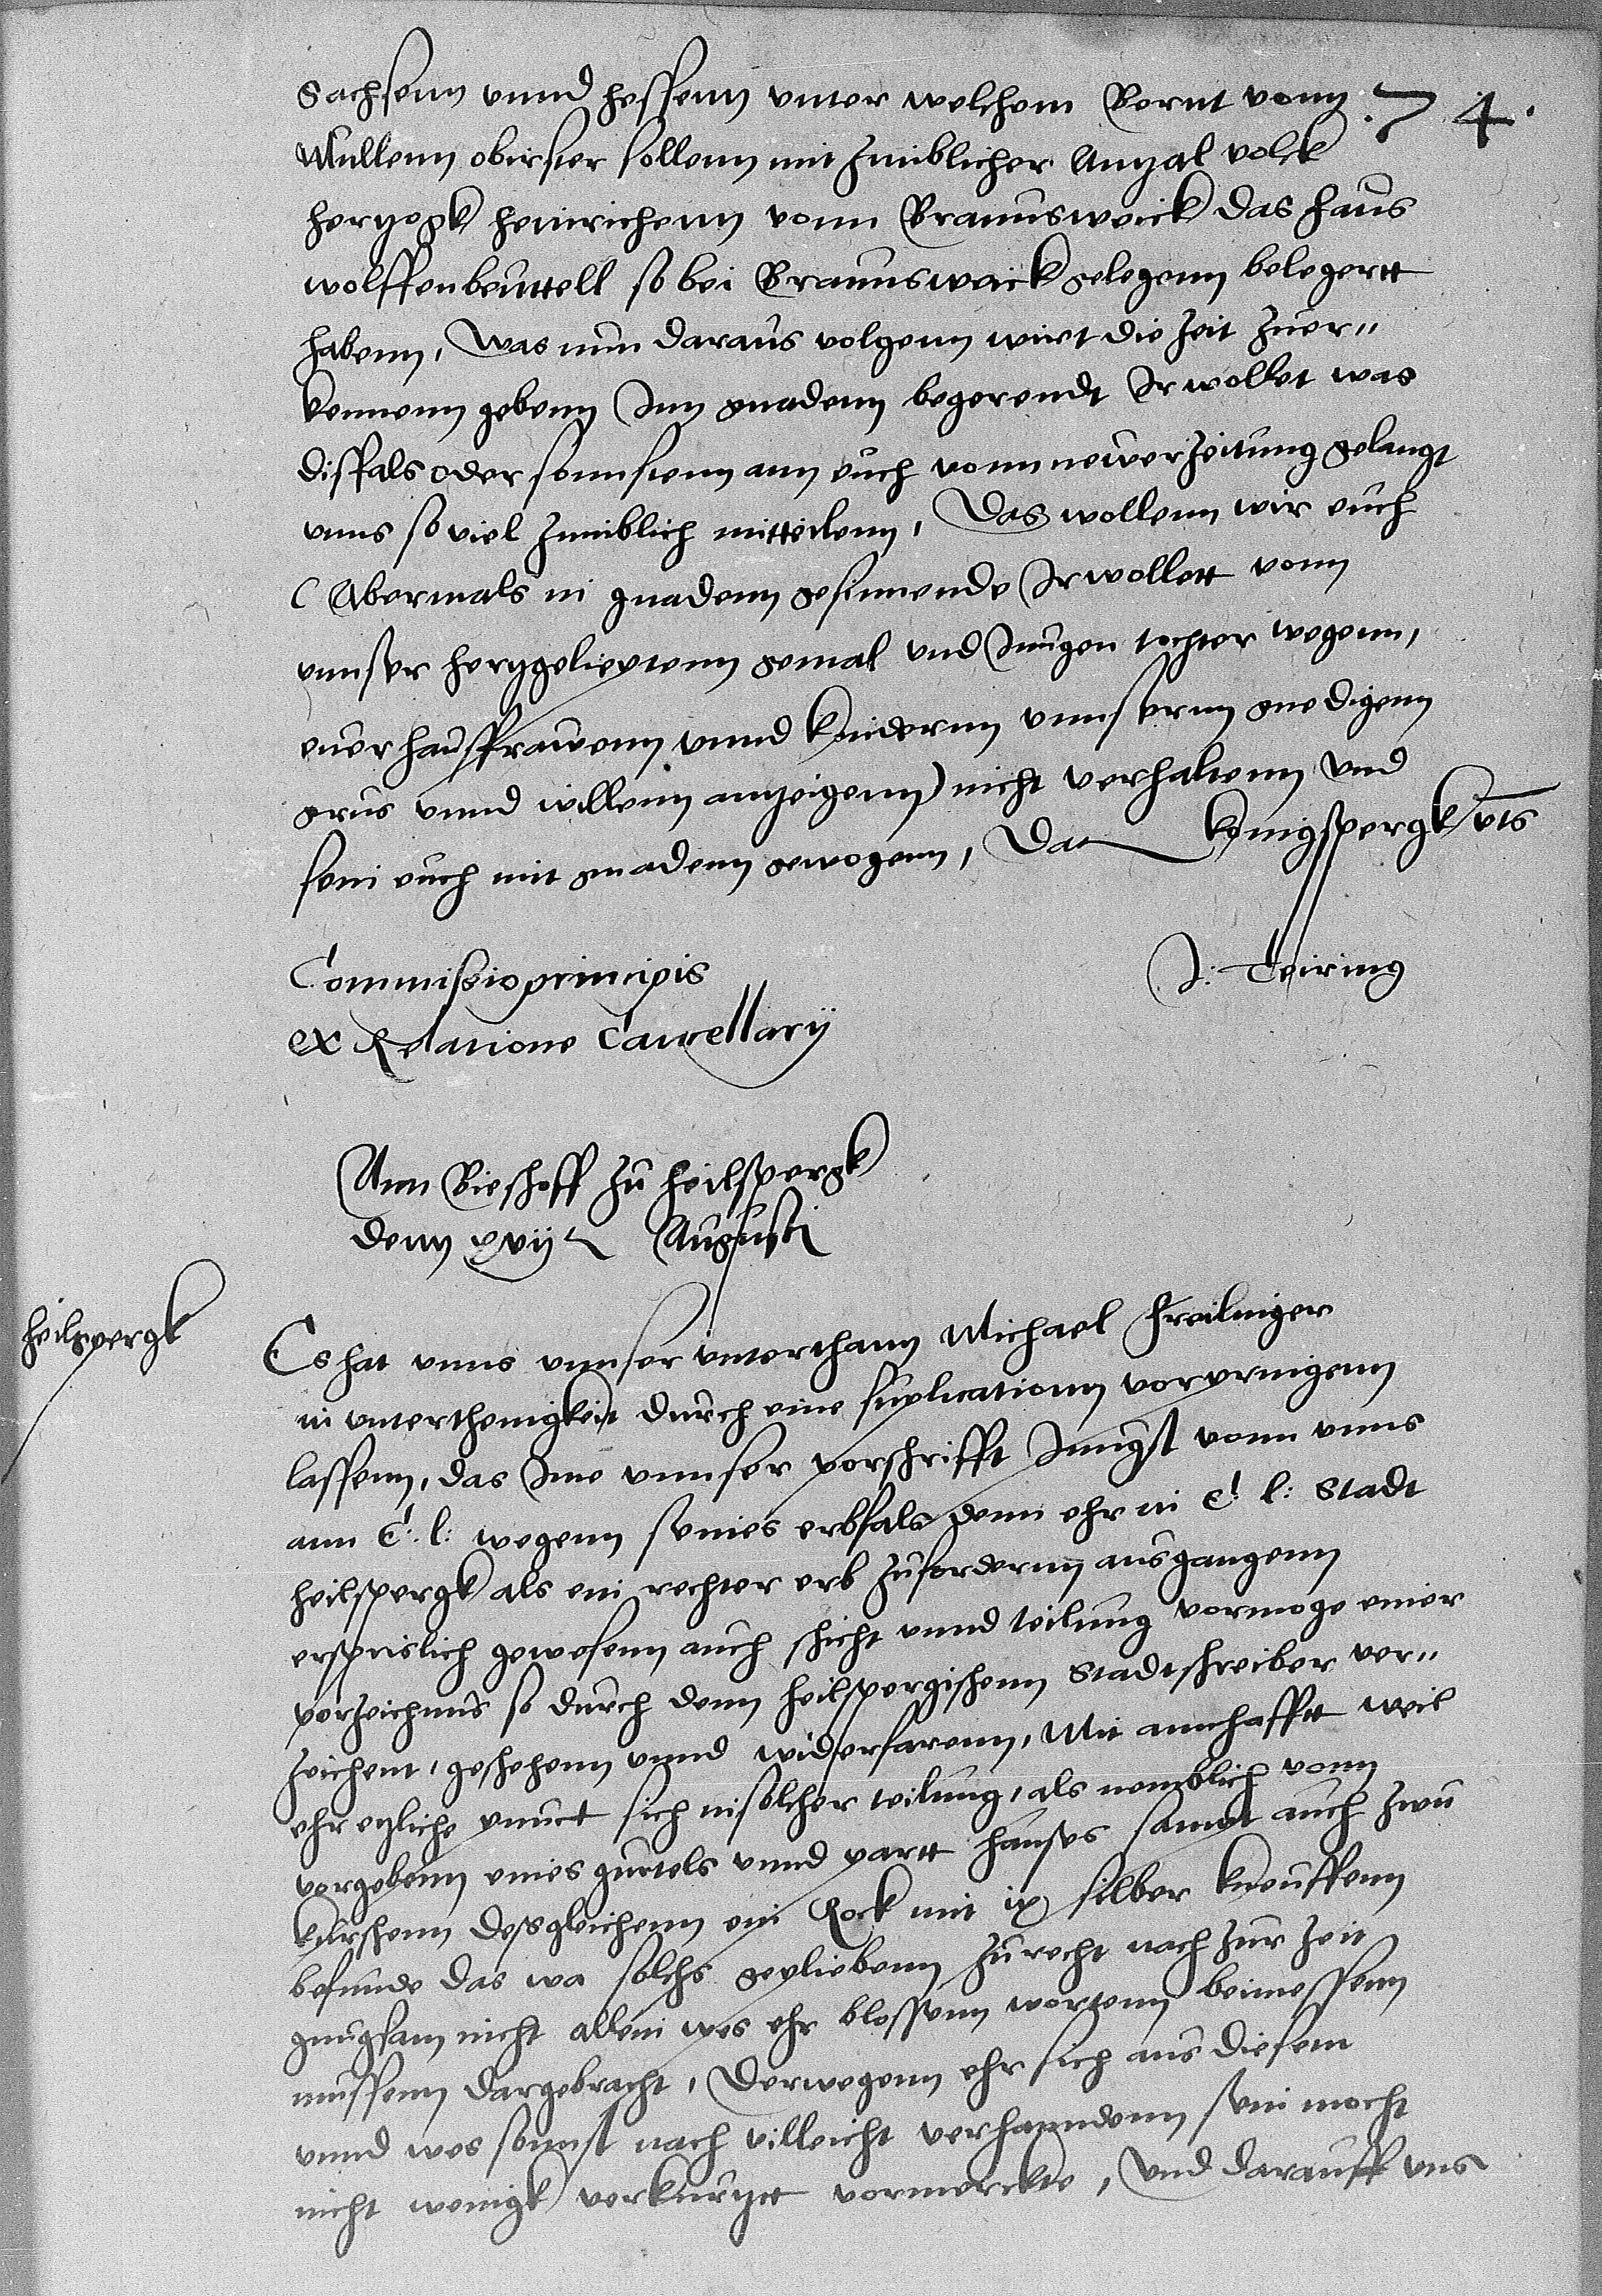 Sachsenn vnnd hessenn vnter welchem Bernt vonn
74.
Mullenn obirster sollenn mit zimblicher Anzal volck
hertzogk heinrichenn vonn Braunsweick das haus
wolffenbeuttell so bei Braunsweick gelegenn belegertt
habenn, was nun daraus volgenn wirt die zeit zuer=
kennenn gebenn Inn gnadenn begerendt Ir wollet was
disfals oder sonnstenn ann euch vonn newer zeitung gelangt
vnns so viel zimblich mitteilenn, Das wollenn wir euch
(Abermals in gnadenn gesinnende Ir wollett vonn
vnnser hertzgelieptenn gemal vnd Jungen tochter wegenn,
euer hausfrawenn vnnd kindernn vnnsernn gnedigenn
grus vnnd willenn anzeigenn) nicht verhaltenn vnd
sein euch mit gnadenn gewogenn, Dat Konigspergk vts
Commissio principis
J: Teiring
ex Relatione Cancellarij
Ann Bieschoff zu heilspergk
denn xvij t Augusti
heilspergk
Es hat vnns vnnser vnterthann Michael Freilinger
in vnterthenigkeit durch eine suplicationn vorpringenn
lassenn, das Ime vnnser vorschrifft Jungst vonn vnns
ann E: l: wegenn seines erbfals denn ehr in E: l: Stadt
heilspergk als ein rechter erb zufordernn ausgangenn
ersprislich gewesenn auch schicht vnnd teilung vormoge einer
vorzeichnus so durch denn heilspergischenn Stadtschreiber ver=
zeichent, geschehenn vnnd widerfarenn, Mit annhafftt weil
ehr etzliche punct sich in solcher teilung, als nemblich vonn
vorgebenn eines gurtels vnnd partt hauses sampt auch zwu
kurschenn desgleichenn ein Rock mit ix silber kneuffenn
befunde das wa solchs gepliebenn zu recht nach zur zeit
gnugsam nicht allein wes ehr blossenn wortenn beimessenn
mussenn dargebracht, Derwegenn ehr sich aus diesem
vnnd wes sonnst nach villeicht verhanndenn sein mocht
nicht wenigk verkurtztt vormerckte, Vnd darauff vns